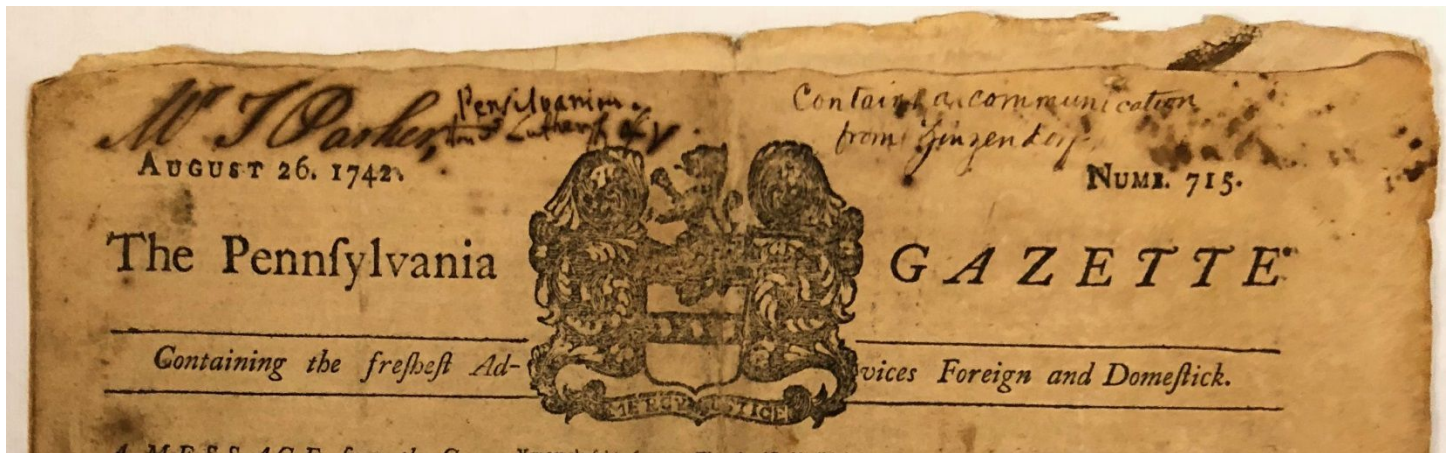 Mr J Parker,
Pensilvania
Contains a communication
from Zinzendorf
AUGUST 26. 1742.
NUMB. 715.
The Pennſylvania GAZETTE
Containing the freſheſt Ad-vices Foreign and Domeſtick.
MERCY JUSTICE
A MESSAGE